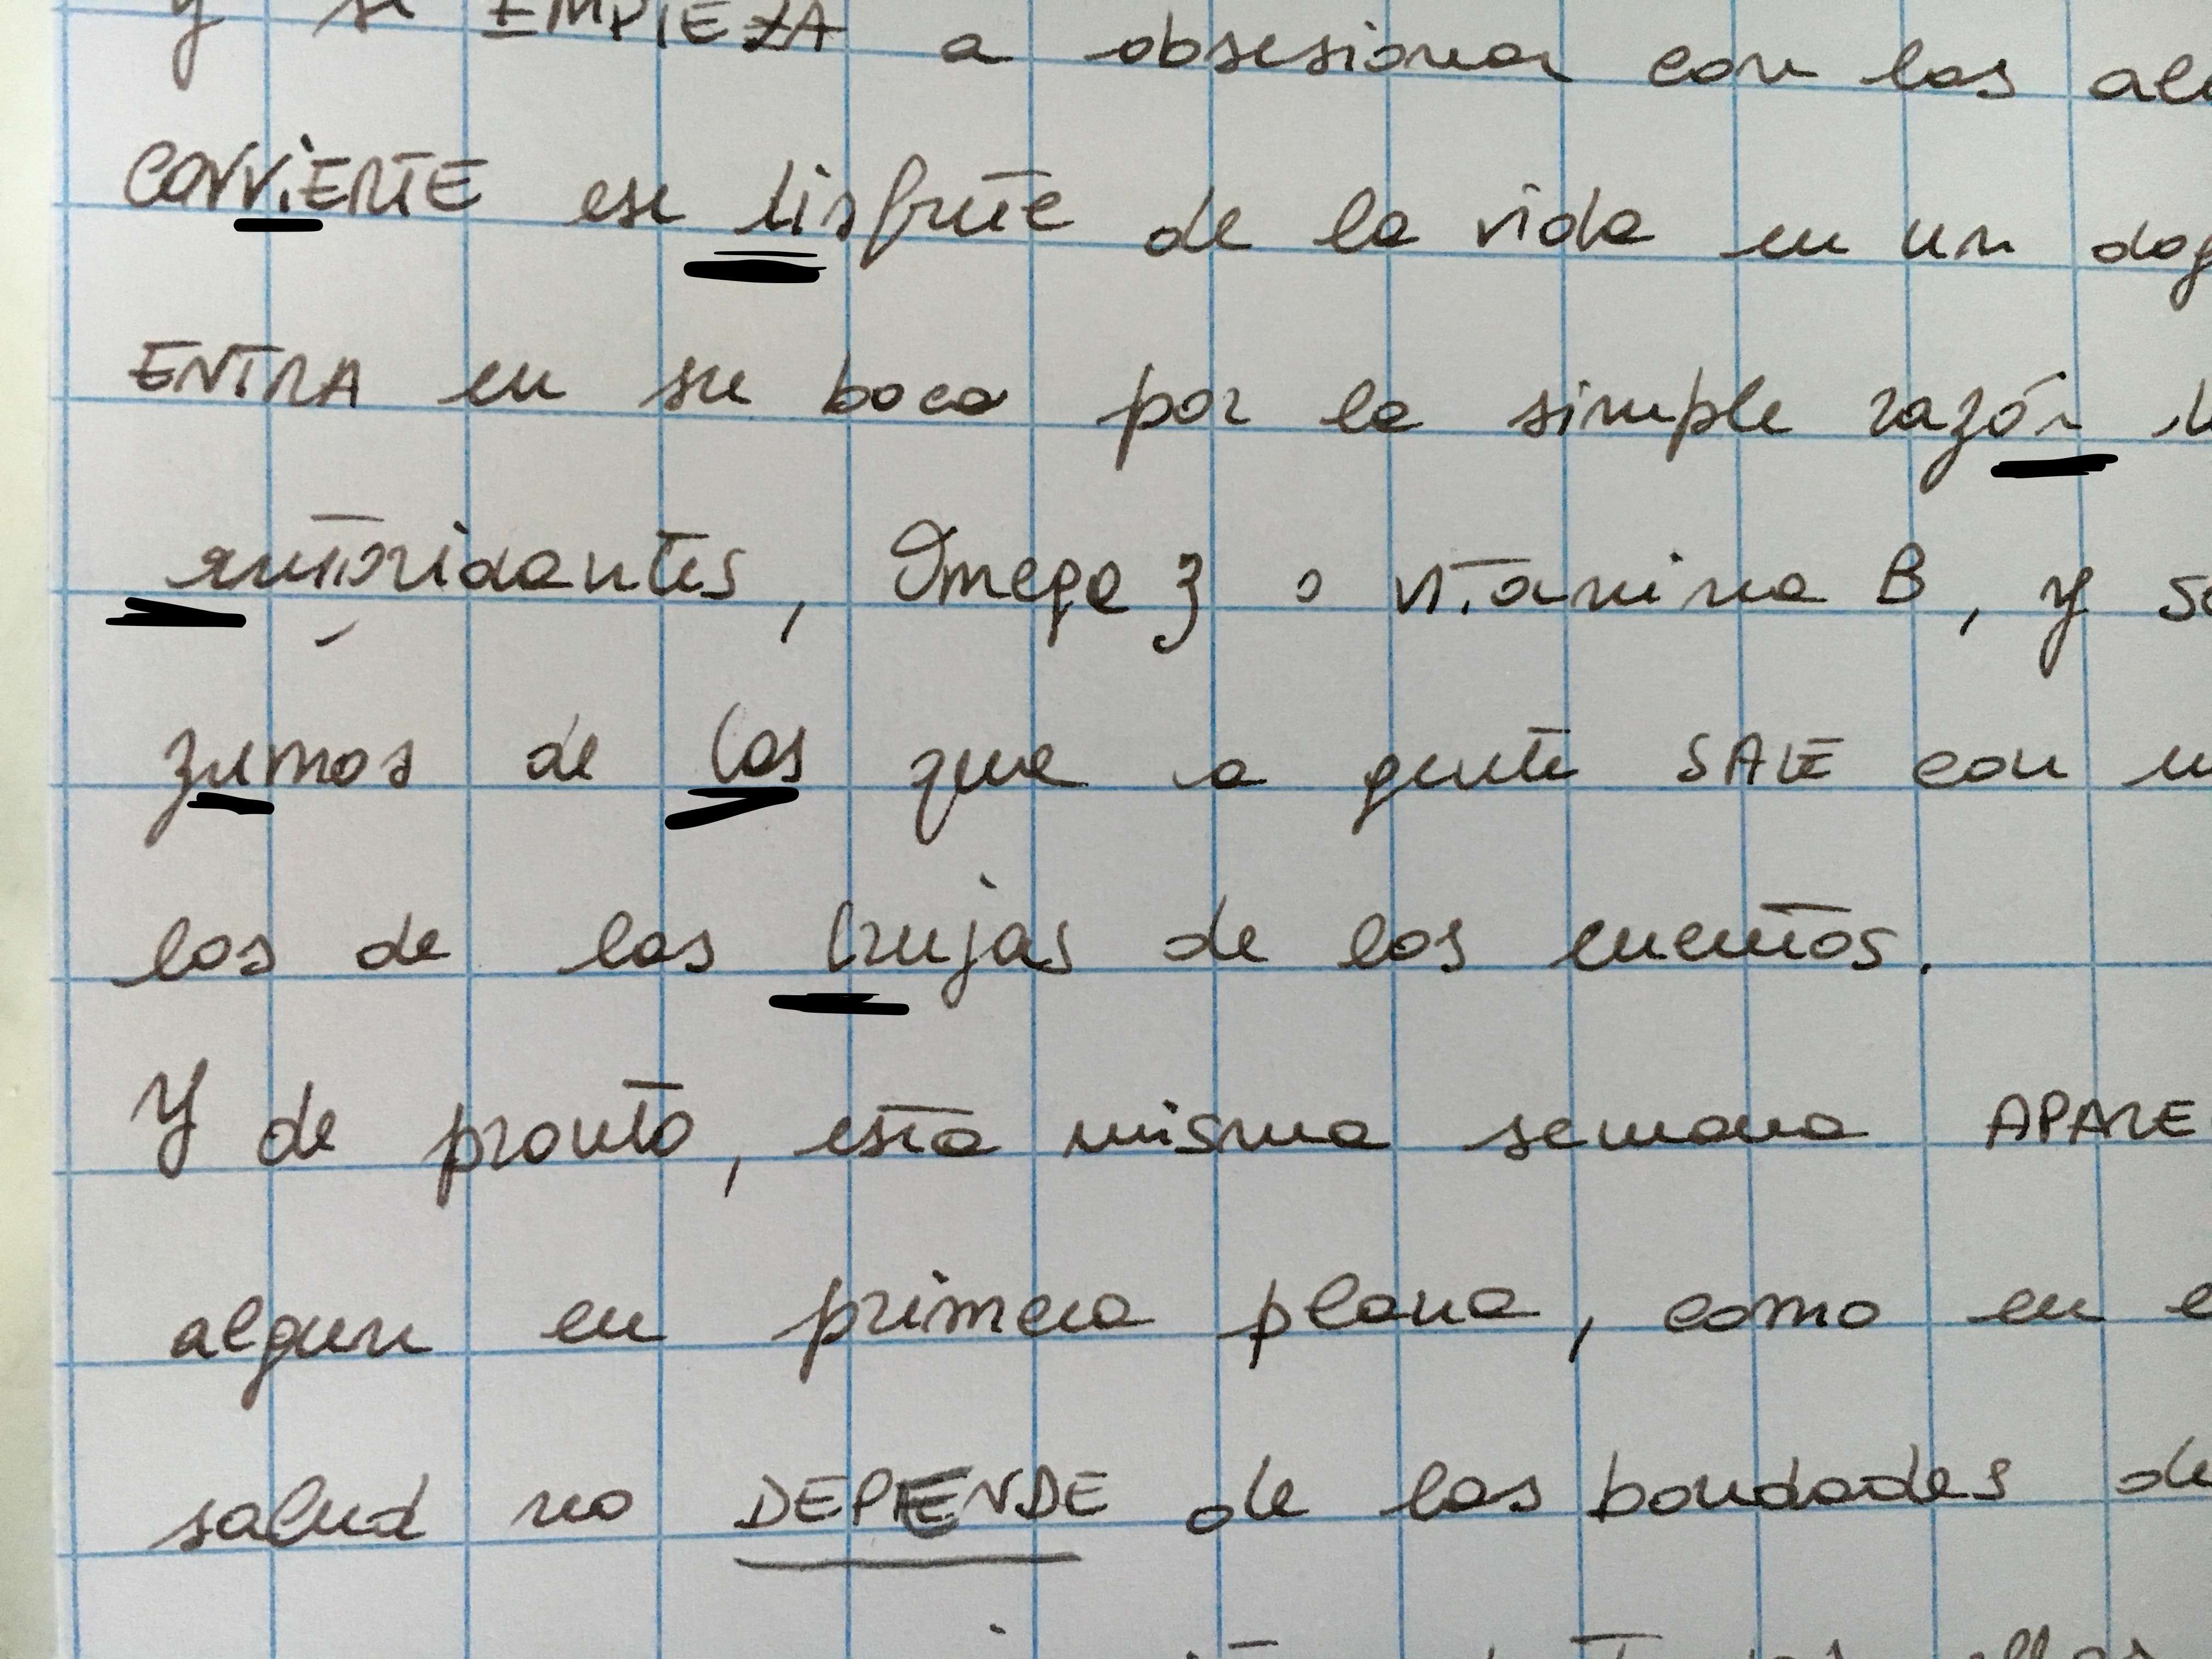 y se EMPIEZA a obsesionar con los al
CONVIERTE ese disfrute de la vida en un dog
ENTRA en su boca por la simple razón d
antioxidantes, Omega 3 o vitamina B, y s
zumos de los que a gente SALE con u
los de las brujas de los cuentos.
Y de pronto, esta misma semana APARE
algun en primera plana, como en e
salud no DEPENDE de las bondades de